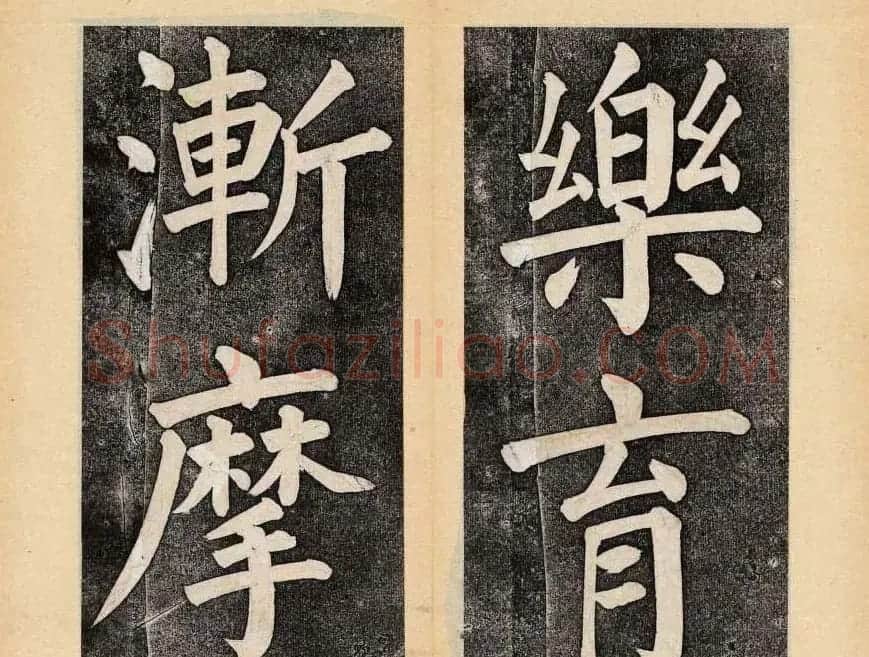 樂育
漸摩
Shufaziliao.COM